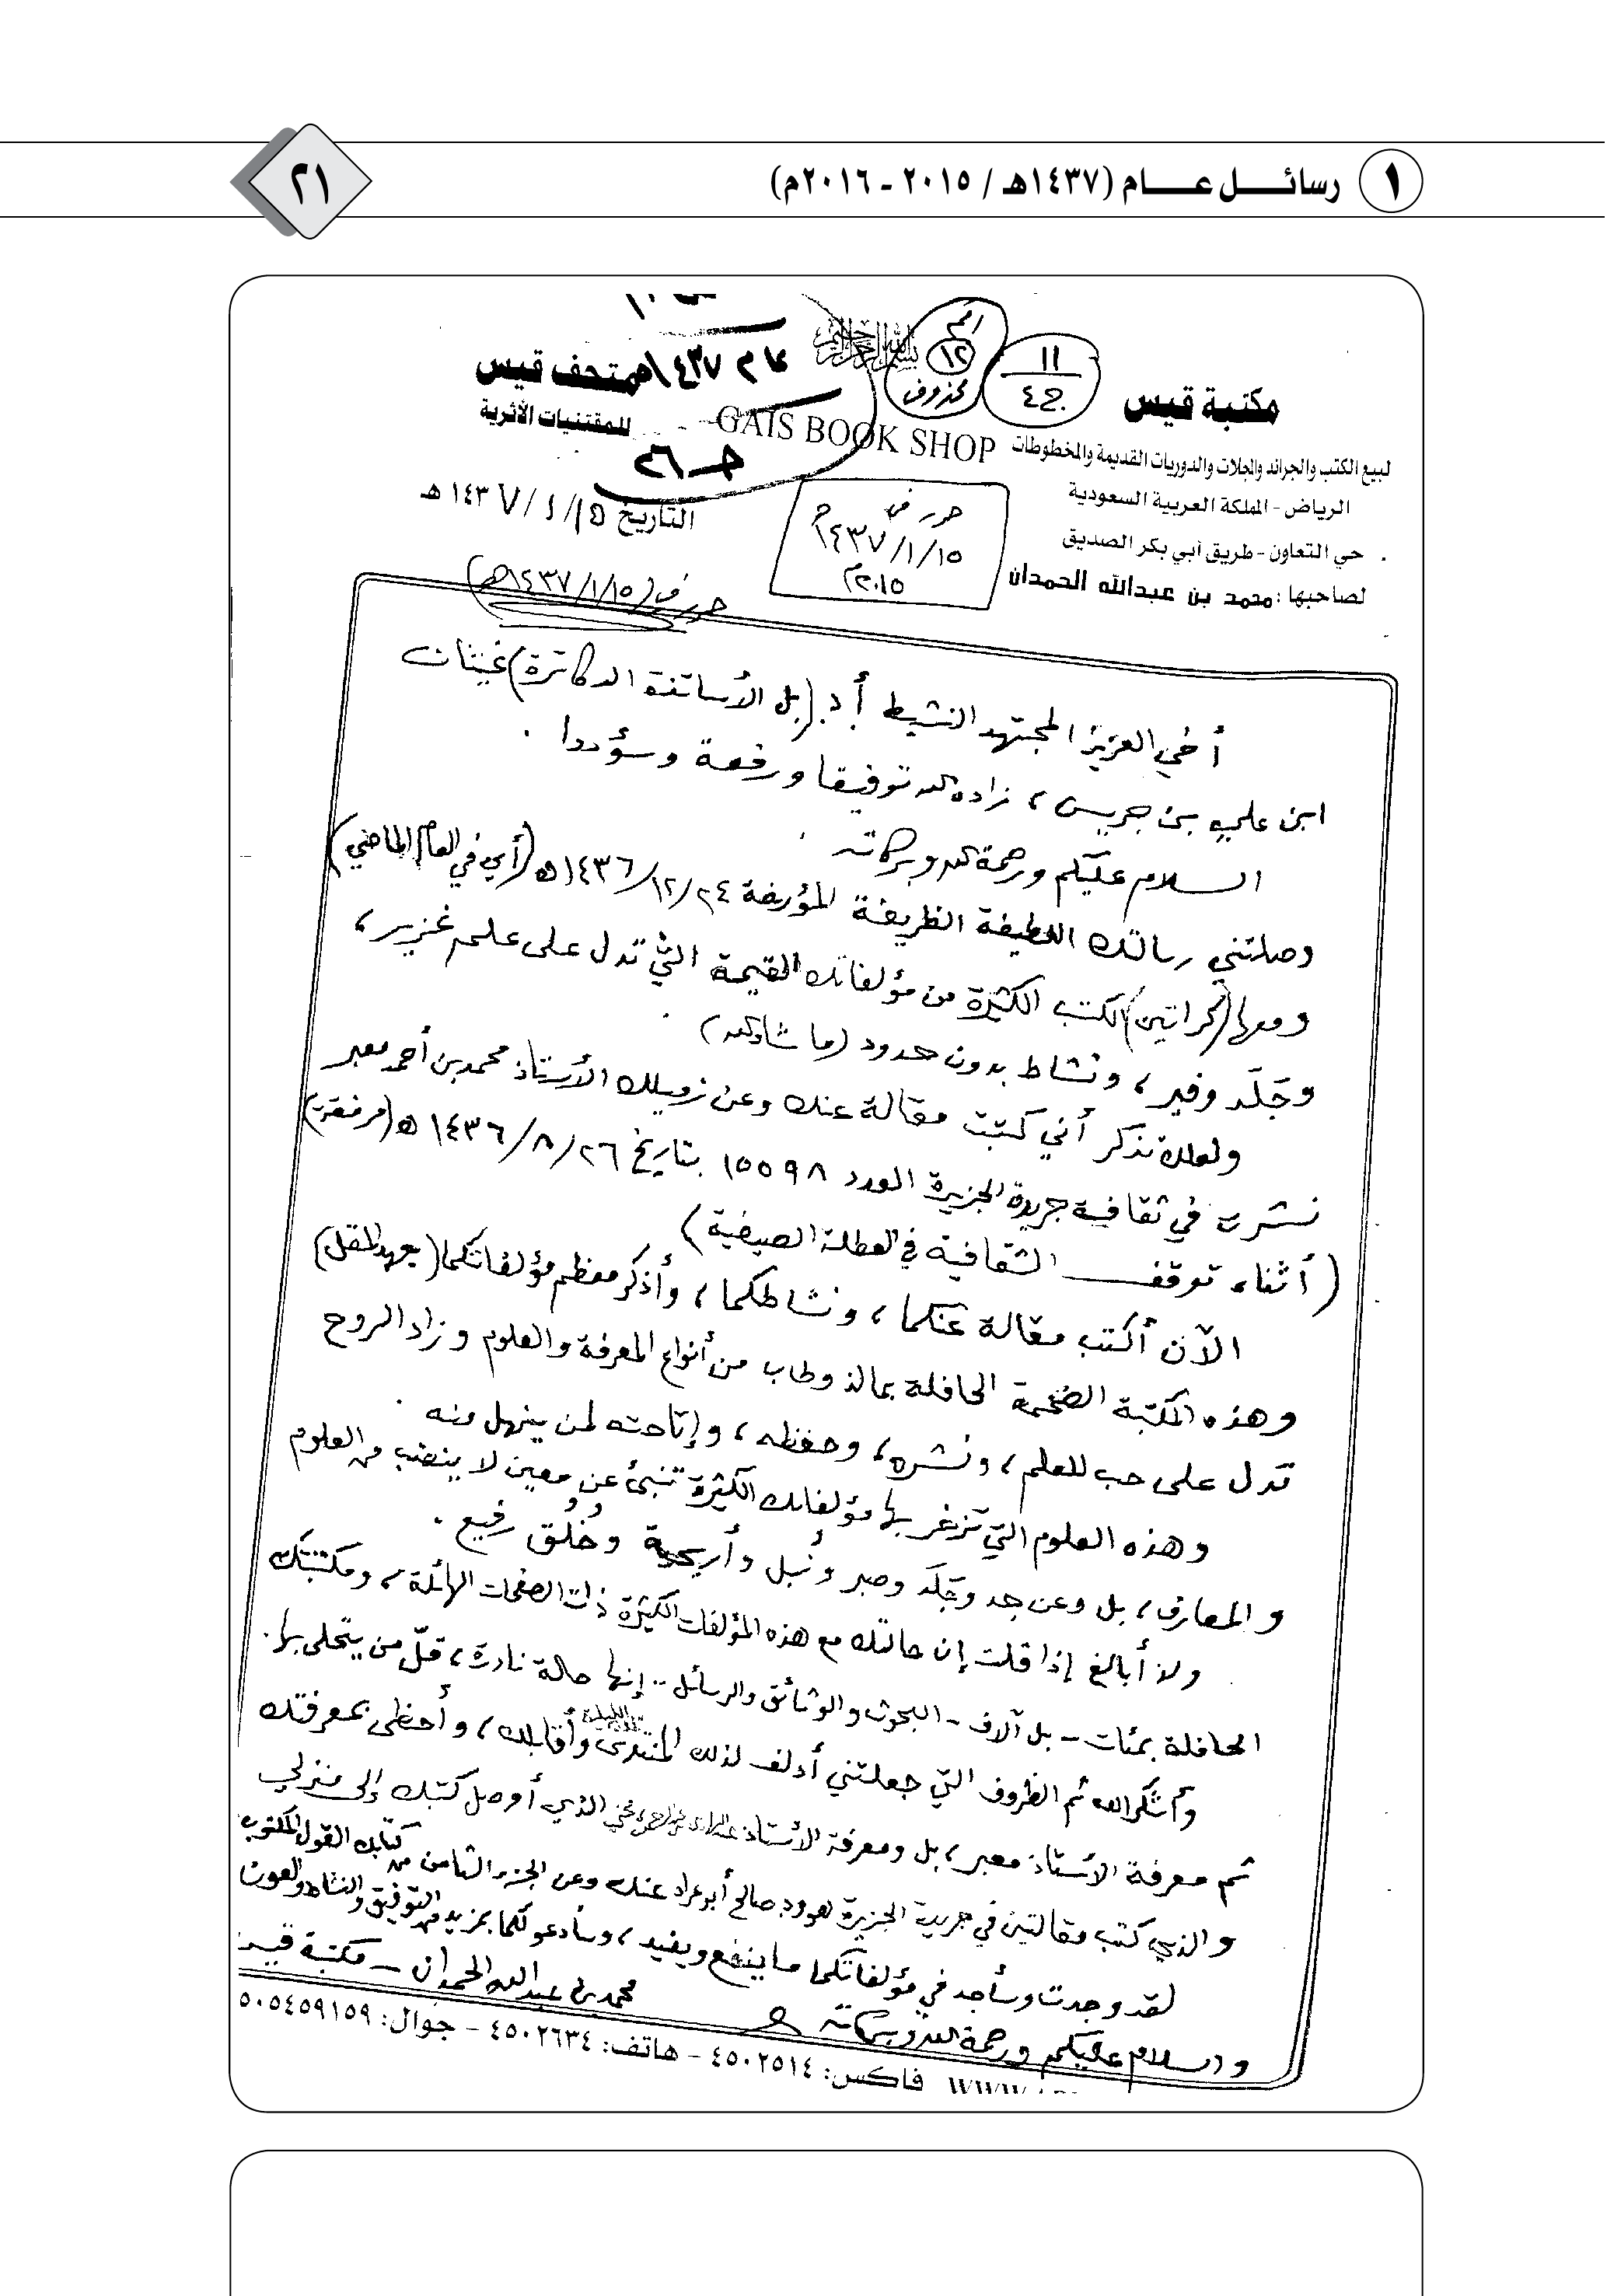 ١ رسائل عام (١٤٣٧هـ / ٢٠١٥ ـ ٢٠١٦م)
٢١
بسم الله الرحمن الرحيم
رقم ١٢ محذوف
١١ ج٤
عام ١٤٣٧هـ
مكتبة قيس
متحف قيس
للمقتنيات الأثرية
GAIS BOOK SHOP
لبيع الكتب والجرائد والمجلات والدوريات القديمة والمخطوطات
الرياض - المملكة العربية السعودية
حي التعاون - طريق أبي بكر الصديق
لصاحبها: محمد بن عبدالله الحمدان
حرر في
١٤٣٧/١/١٥هـ
٢٠١٥م
التاريخ ١٥/ ١/ ١٤٣٧ هـ
حرر في (١٤٣٧/١/١٥هـ)
أخي العزيز المجتهد النشيط أ.د. (بل الأساتذة الدكاترة) غيثان
ابن علي بن جريس، زاده الله توفيقا ورفعة وسؤددا.
السلام عليكم ورحمة الله وبركاته.
وصلتني رسالتك اللطيفة الظريفة المؤرخة ١٤٣٦/١٢/٢٤هـ (أي في العام الماضي)
ومعها (كراتين) الكتب الكثيرة من مؤلفاتك القيمة التي تدل على علم غزير،
وجَلَد وفير، ونشاط بدون حدود (ما شاء الله).
ولعلك تذكر أني كتبت مقالة عنك وعن زميلك الأستاذ محمد بن أحمد معبر
نشرت في ثقافية جريدة الجزيرة العدد ١٥٥٩٨ بتاريخ ١٤٣٦/٨/٢٦هـ (مرفقة)
(أثناء توقف الثقافية في العطلة الصيفية)
الآن أكتب مقالة عنكما، ونشاطكما، وأذكر معظم مؤلفاتكما (بجهد المقل)
وهذه المكتبة الضخمة الحافلة بما لذ وطاب من أنواع المعرفة والعلوم وزاد الروح
تدل على حب للعلم، ونشره، وحفظه، وإتاحته لمن ينهل منه.
وهذه العلوم التي تزخر بها مؤلفاتك الكثيرة تنبئ عن معين لا ينضب من العلوم
والمعارف، بل وعن جد وجَلَد وصبر ونُبل وأريحية وخُلُق رفيع.
ولا أبالغ إذا قلت إن حالتك مع هذه المؤلفات الكثيرة ذات الصفحات الهائلة، ومكتبتك
الحافلة بمئات - بل آلاف - البحوث والوثائق والرسائل.. إنها حالة نادرة، قلّ من يتحلى بها.
وأشكر الله ثم الظروف التي جعلتني أدلف لذلك المنتدى تلك الليلة وأقابلك، وأحظى بمعرفتك
ثم معرفة الأستاذ معبر، بل ومعرفة الأستاذ الذي أوصل كتبك إلى منزلي
والذي كتب مقالتين في جريدة الجزيرة هو ود. صالح أبو عراد عنك وعن الجزء الثامن من كتابك القول المكتوب
لقد وجدت وسأجد في مؤلفاتكما ما ينفع ويفيد، وسأدعو لكما بمزيد من التوفيق والنشاط والعون
والسلام عليكم ورحمة الله وبركاته
محمد بن عبدالله الحمدان - مكتبة قيس
فاكس: ٤٥٠٢٥١٤ - هاتف: ٤٥٠٢٦٣٤ - جوال: ٥٠٥٤٥٩١٥٩